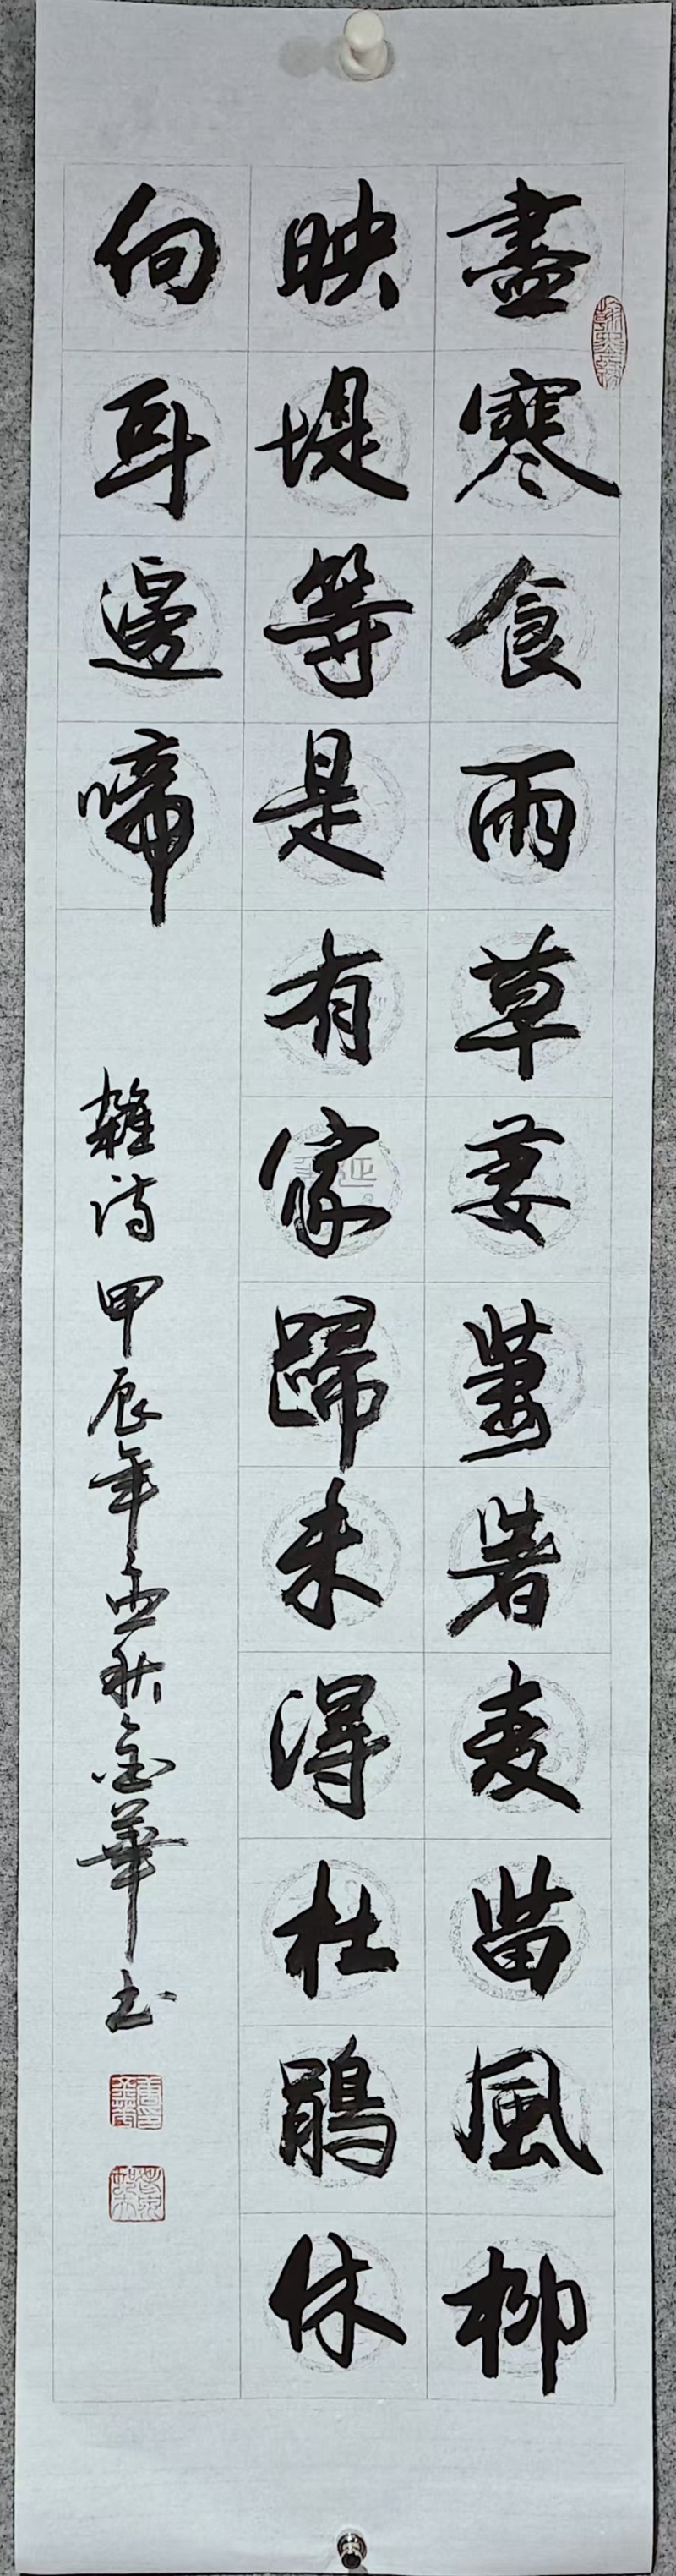 盡寒食雨草萋萋著麦苗風柳
映堤等是有家歸未得杜鵑休
向耳邊啼
雜詩 甲辰年孟秋金華书